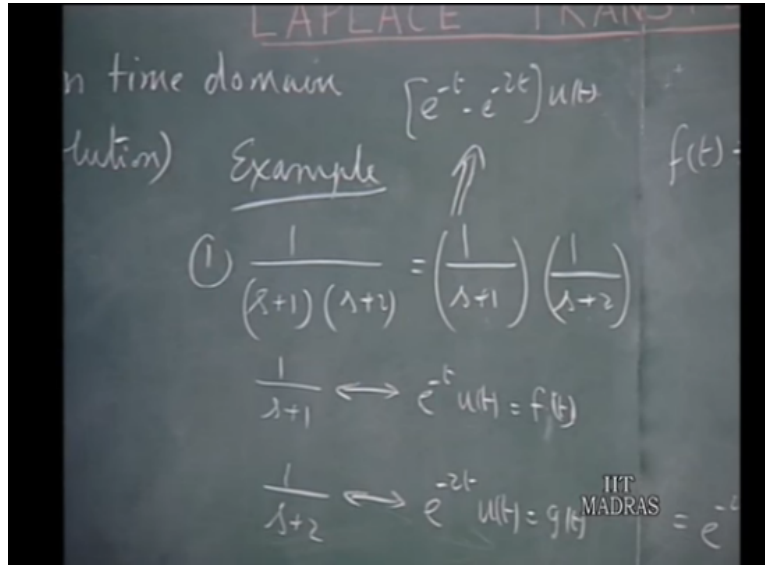 LAPLACE TRANSF
n time domain [e^{-t} - e^{-2t}] u(t)
lution) Example f(t)
① 1/((s+1)(s+2)) = (1/(s+1)) (1/(s+2))
1/(s+1) ↔ e^{-t} u(t) = f(t)
1/(s+2) ↔ e^{-2t} u(t) = g(t)
= e^{-t}
IIT
MADRAS